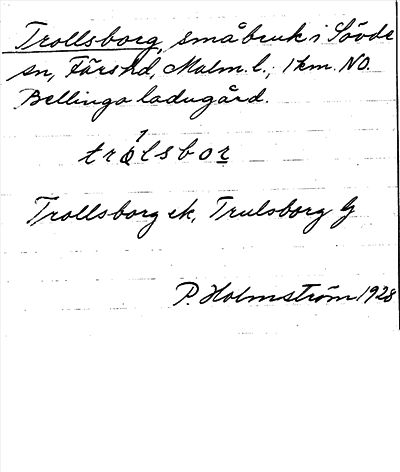 Trollsborg, småbruk i Sövde
sn, Färs hd, Malm. l., 1 km. NO.
Bellinga ladugård.
trólsbor
Trollsborg ek, Trulsborg G
P. Holmström 1928